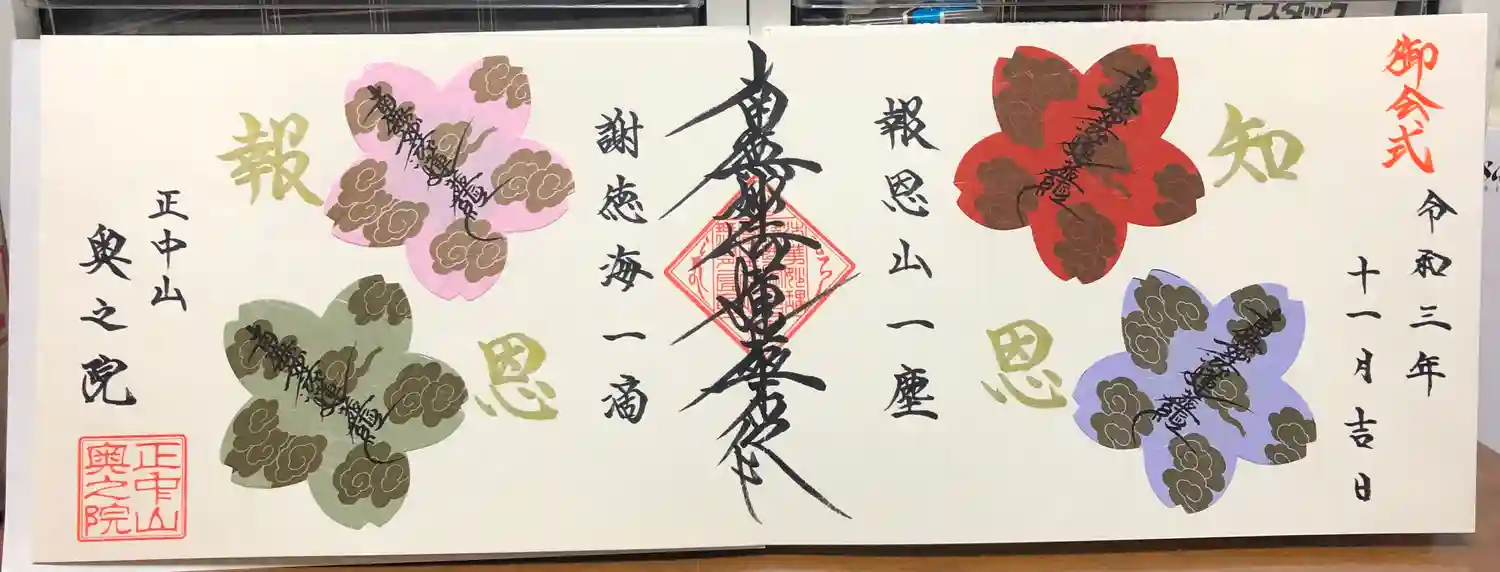 御会式
令和三年
十一月吉日
知恩
報恩山一塵
南無妙法蓮華経
謝徳海一滴
報恩
正中山
奥之院
正中山
奥之院
イスタック